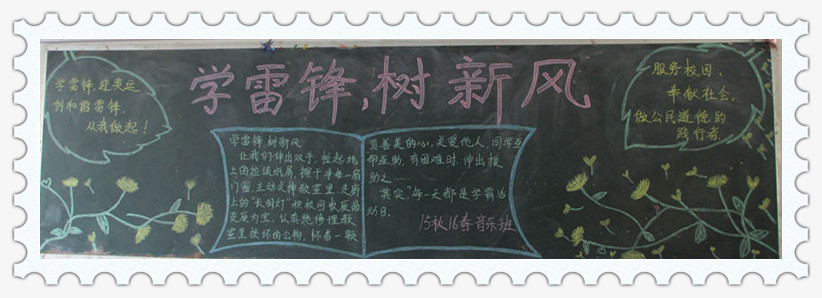 学雷锋,树新风
学雷锋,迎奥运
创和谐雷锋,
从我做起!
学雷锋,树新风
让我们伸出双手,捡起地
上的垃圾纸屑,擦干净每一扇
门窗,主动关掉教室里、走廊
上的"长明灯"积极回收废品
变废为宝,认真地修理教
室里损坏的公物,怀着一颗
真善美的心,关爱他人,同学互
帮互助,有困难时,伸出援
助之……
其实,"每一天都是学雷活
动日。
15秋16春音乐班
服务校园,
奉献社会,
做公民道德的
践行者.